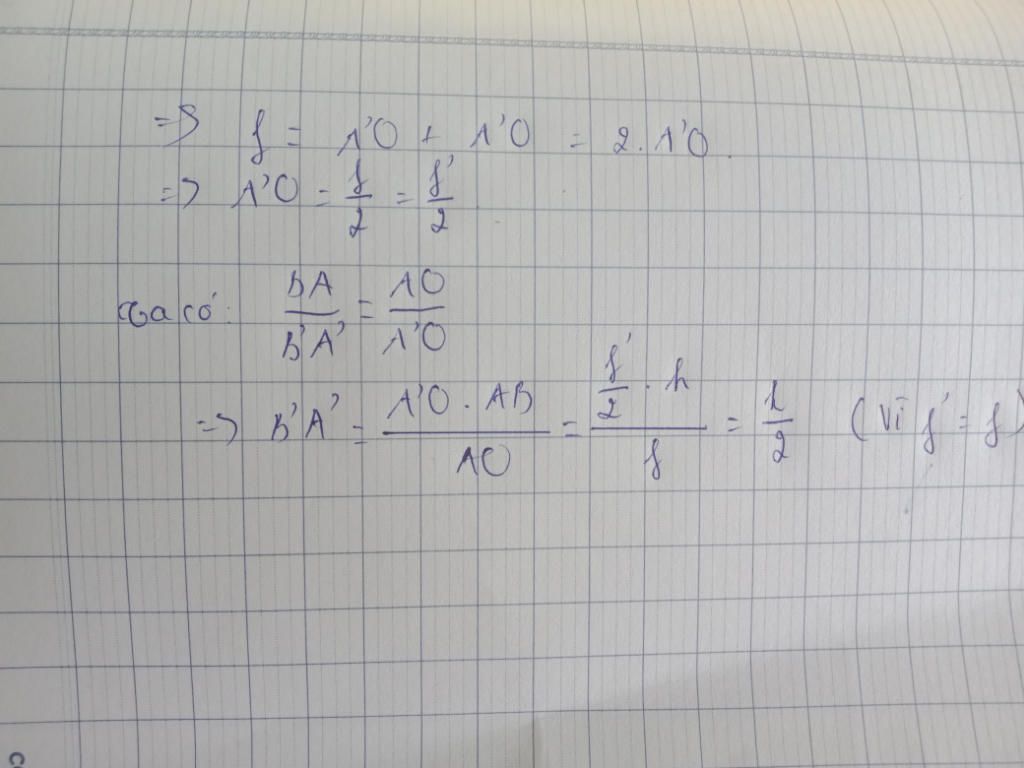 => f = A'O + A'O = 2. A'O.
=> A'O = f/2 = f'/2
Ta có: BA/B'A' = AO/A'O
=> B'A' = (A'O . AB)/AO = (f'/2 . h)/f = h/2 (Vì f' = f)